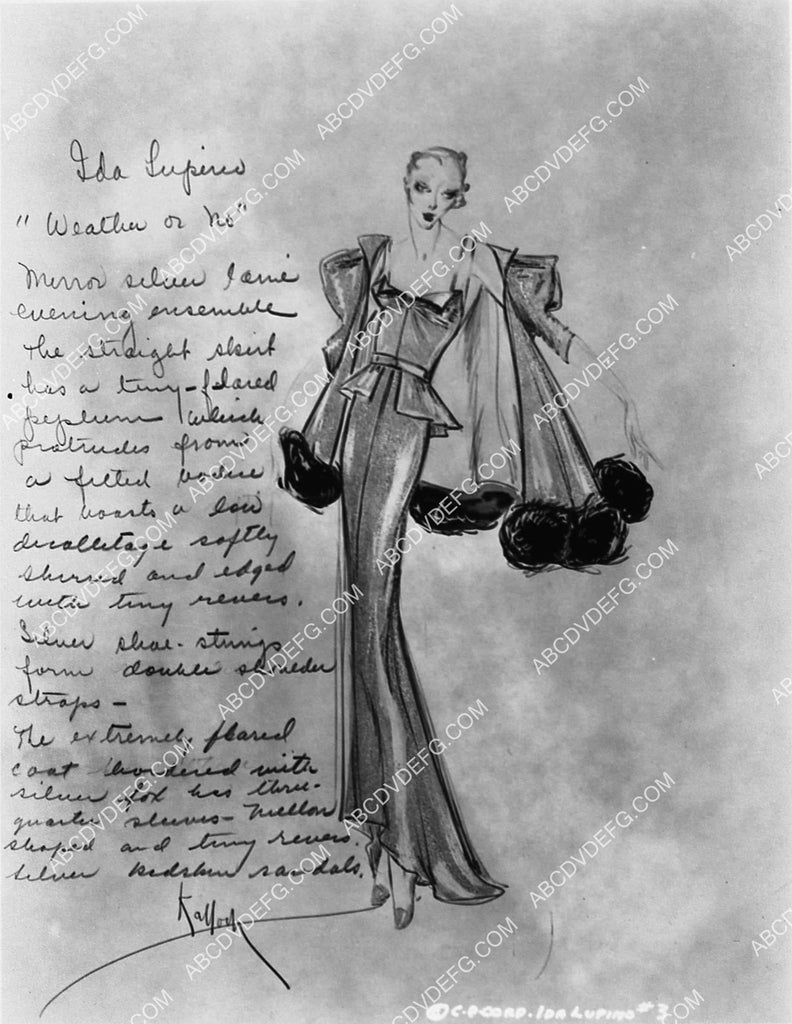 Ida Lupino
"Weather or No"
Mirror silver lamé
evening ensemble
the straight skirt
has a tiny-flared
peplum which
protrudes from
a fitted bodice
that boasts a low
decolletage softly
shirred and edged
with tiny revers.
Silver shoe-strings
form double shoulder
straps -
The extremely flared
coat bordered with
silver fox has three-
quarter sleeves - mellon
shaped and tiny revers.
Silver kidskin sandals.
Kalloch
©C.P.CORP. IDA LUPINO #3
ABCDVDEFG.COM